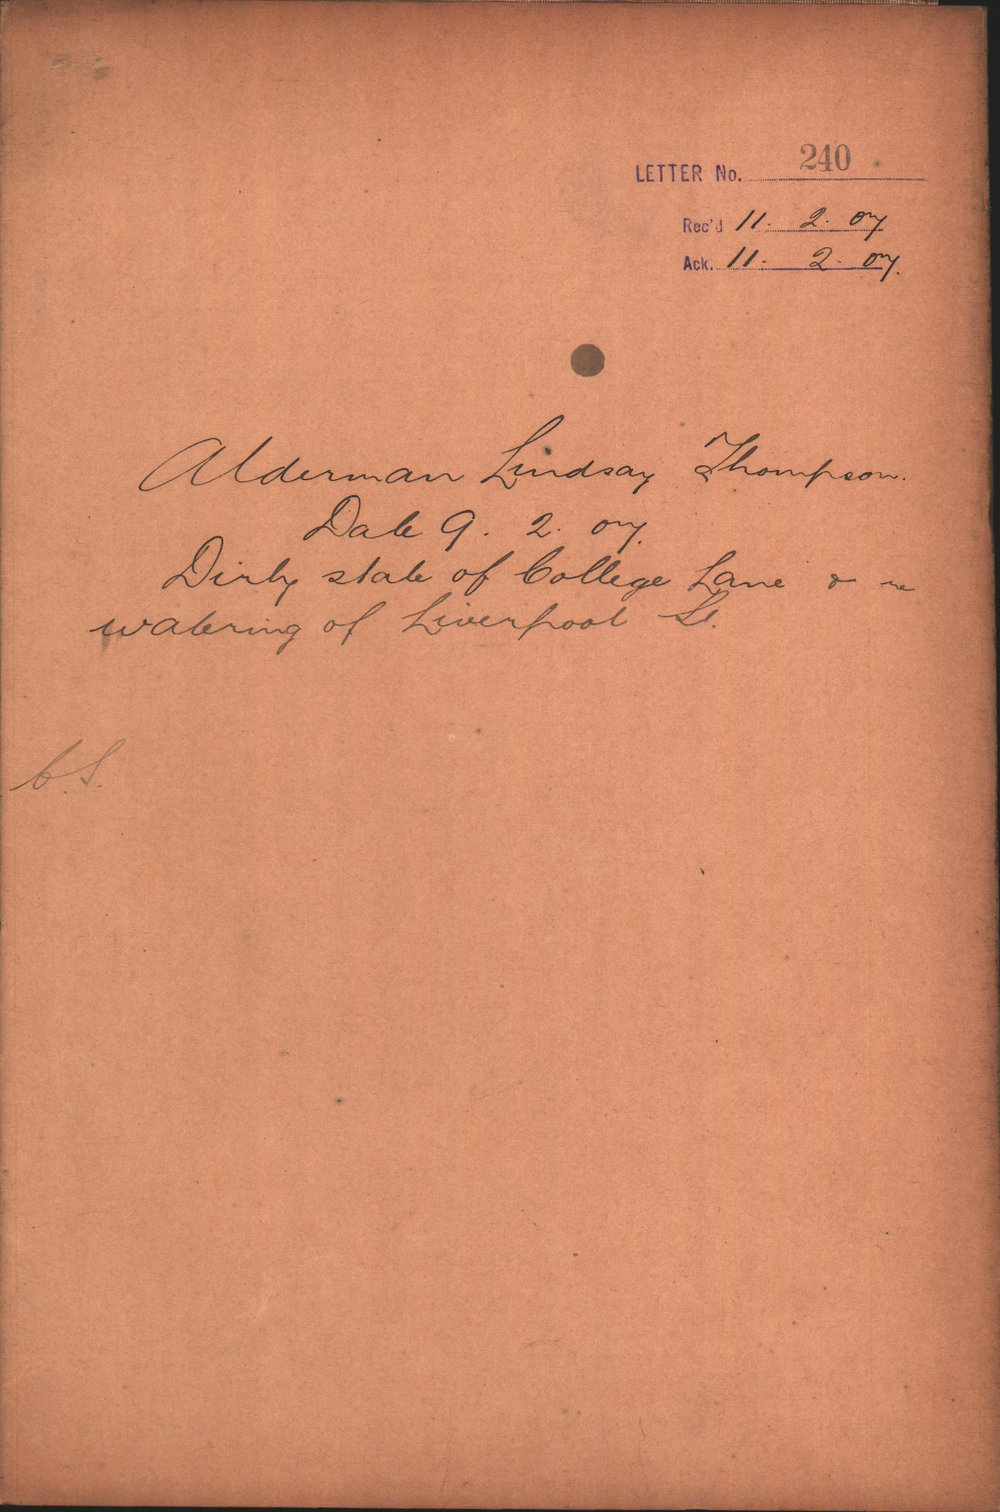 LETTER No. 240
Rec'd 11. 2. 07
Ack. 11. 2. 07.
Alderman Lindsay Thompson.
Date 9. 2. 07.
Dirty state of College Lane & re
watering of Liverpool St.
C.S.